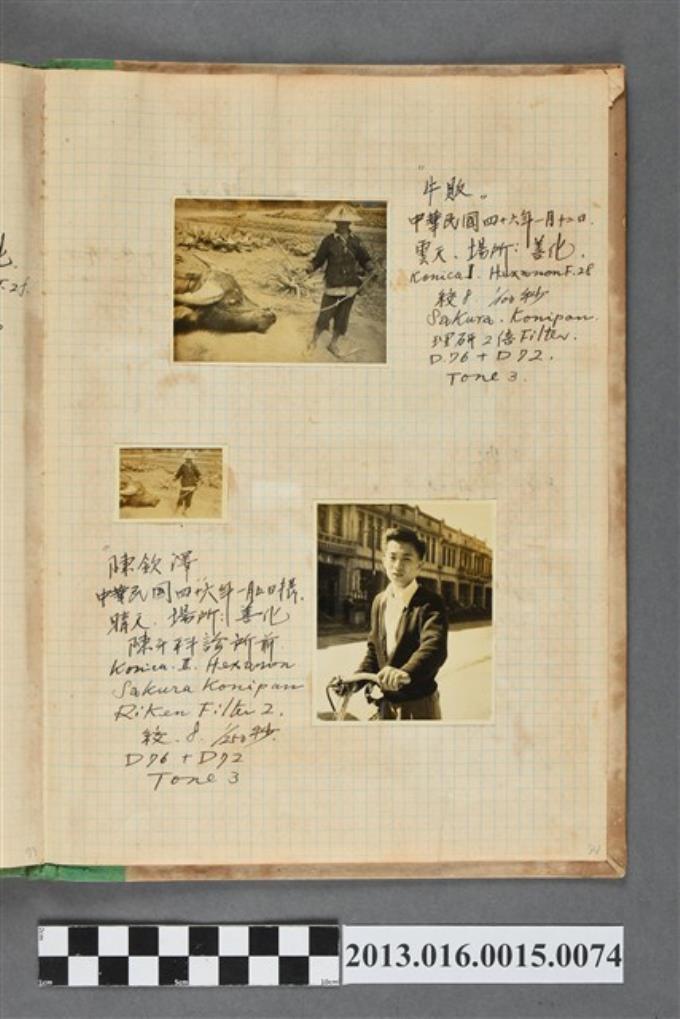 "牛販"
中華民國四十六年一月十二日.
雲天. 場所:善化.
Konica Ⅱ. Hexanon F.28
絞8. 1/100秒
Sakura. Konipan.
理研2倍Filter.
D.76 + D72.
Tone 3.
"陳欽澤
中華民國四十六年一月 日攝.
晴天. 場所:善化
陳牙科診所前.
Konica. Ⅱ. Hexanon
Sakura Konipan
Riken Filter 2.
絞.8. 1/250秒.
D76 + D72
Tone 3
2013.016.0015.0074
1cm 5cm 10cm